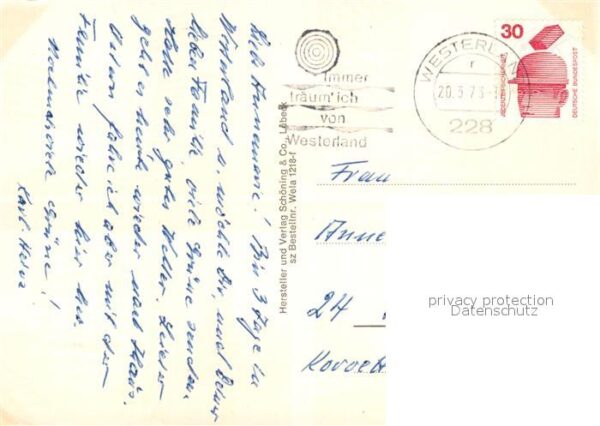 Liebe Annemarie! Bin 3 Tage in
Westerland u. möchte Dir, und Deiner
lieben Familie, viele Grüße senden.
Hatte sehr gutes Wetter. Leider
geht es heute wieder nach Haus.
Ostern fahre ich aber mit der
Familie wieder hier her.
Nochmals viele Grüße!
Karl-Heinz
Hersteller und Verlag Schöning & Co., Lübeck
sz Bestellnr. Wela 1218-f
Immer
träum' ich
von
Westerland
WESTERLAN
r
20.3.73
228
30
JEDERZEIT SICHERHEIT
DEUTSCHE BUNDESPOST
Frau
Anne
24
privacy protection
Datenschutz